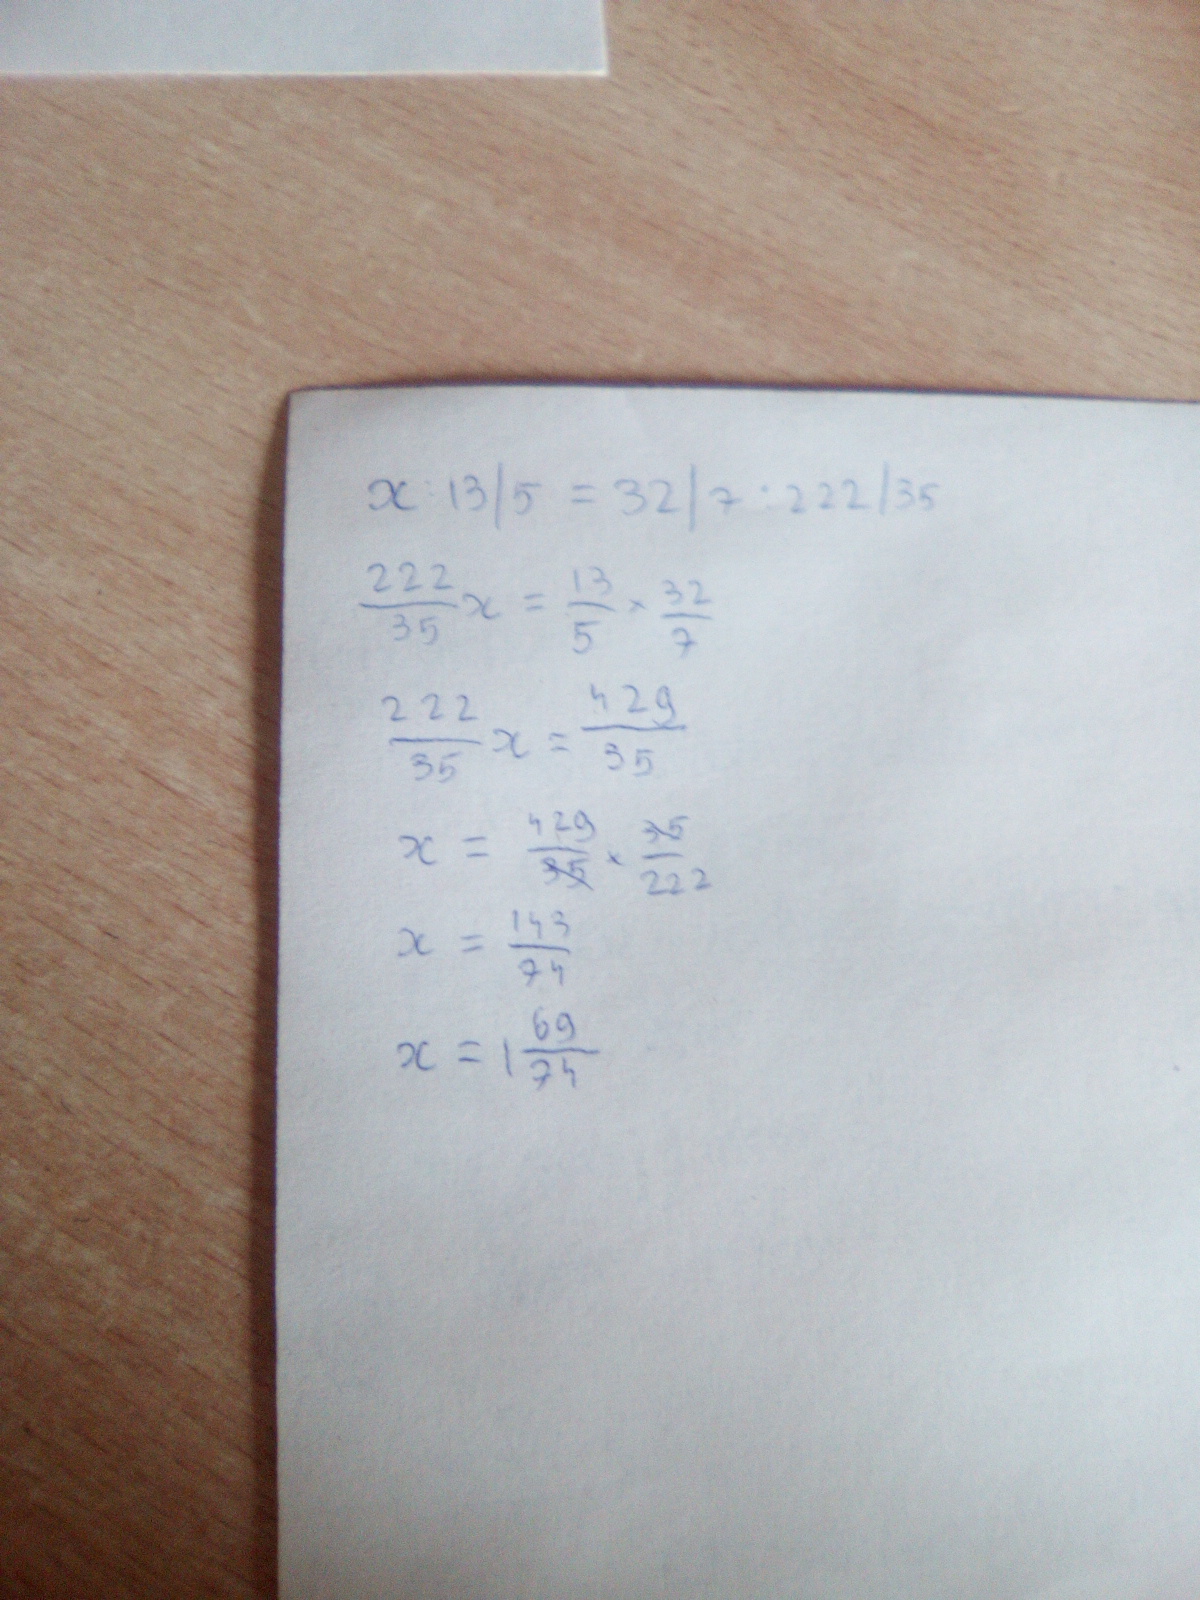 x : 13/5 = 32/7 : 222/35
222/35 x = 13/5 × 32/7
222/35 x = 429/35
x = 429/35 × 35/222
x = 143/74
x = 1 69/74